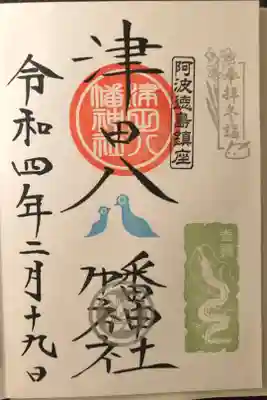 阿波徳島鎮座
津田八幡神社
津田八
幡神社
令和四年二月十九日